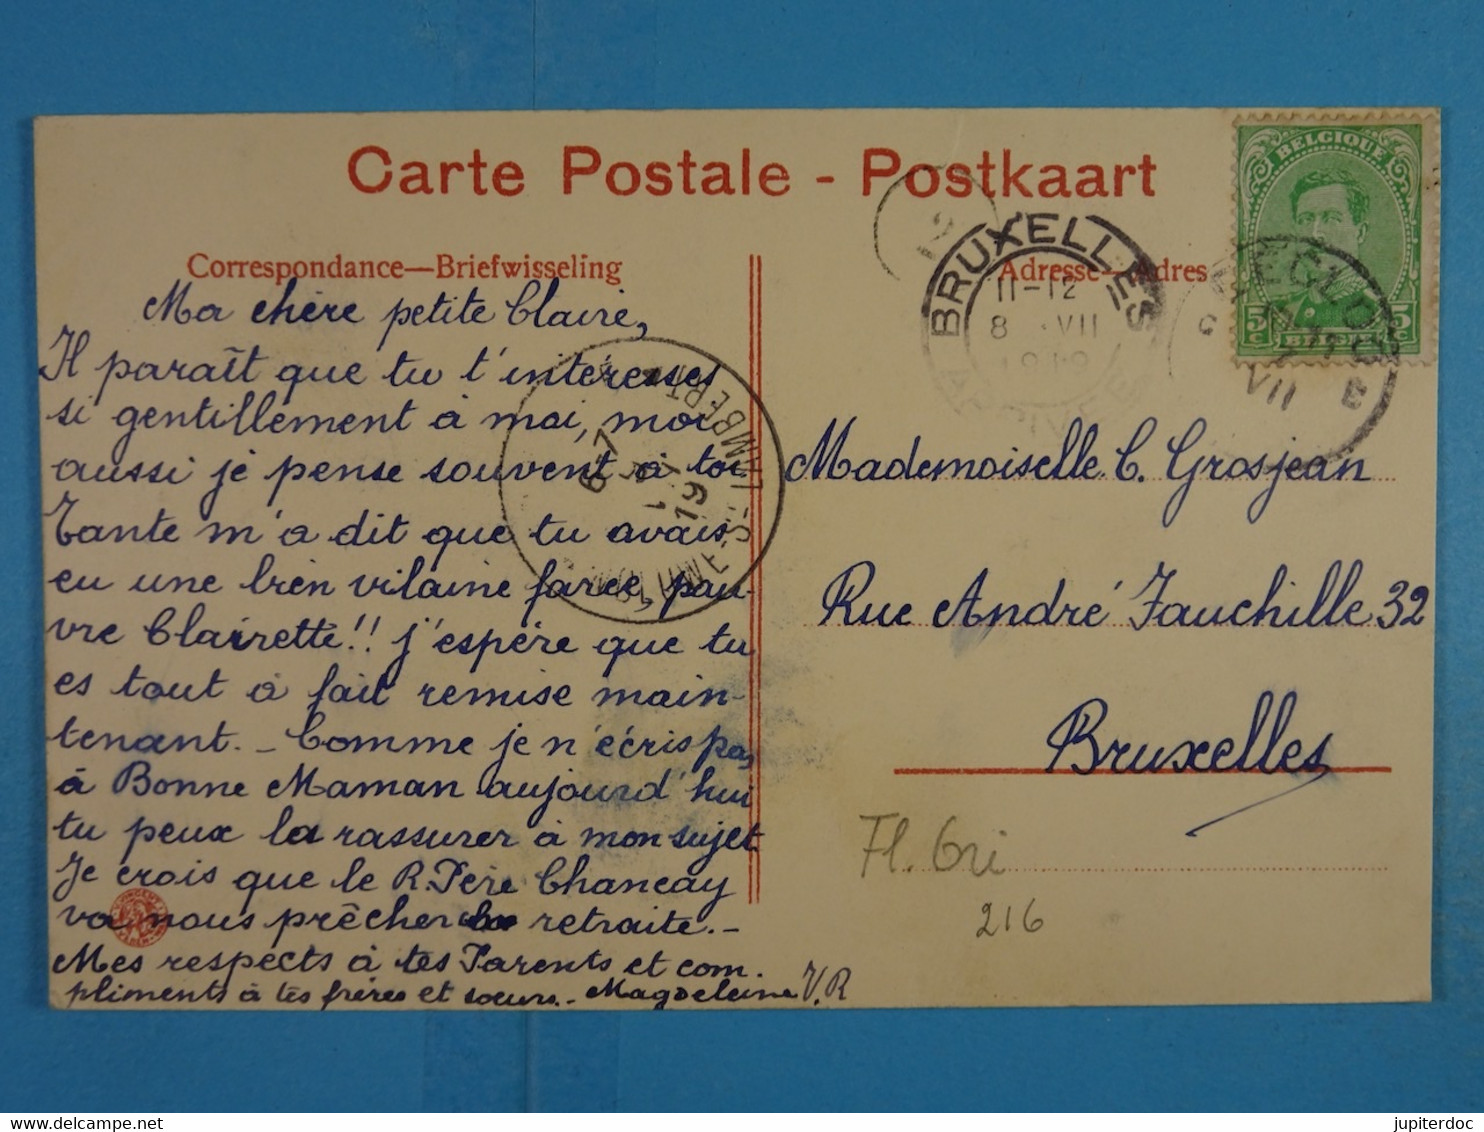 Carte Postale - Postkaart
Correspondance—Briefwisseling
Ma chère petite Claire,
Il paraît que tu t'intéresses
si gentillement à moi, moi
aussi je pense souvent à toi
Tante m'a dit que tu avais
eu une bien vilaine farce, pau-
vre Clairette!! j'espère que tu
es tout à fait remise main-
tenant. - Comme je n'écris pas,
à Bonne Maman aujourd'hui
tu peux la rassurer à mon sujet
Je crois que le R. Père Chancay
va nous prêcher la retraite.-
Mes respects à tes Parents et com.
pliments à tes frères et soeurs.- Magdeleine V.R
Adresse—Adres
Mademoiselle C. Grosjean
Rue André Fauchille 32
Bruxelles
Fl. Ori
216
BELGIQUE
5 c BELGIË 5 c
BRUXELLES
11-12
8 VII
1919
EECLOO
VII
WOLUWE-St-LAMBERT
6-7
19
jupiterdoc